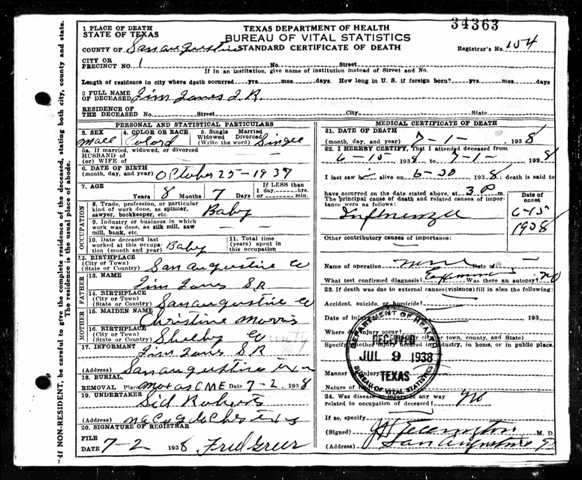 34363
TEXAS DEPARTMENT OF HEALTH
BUREAU OF VITAL STATISTICS
STANDARD CERTIFICATE OF DEATH
Registrar's No. 154
1 PLACE OF DEATH
STATE OF TEXAS
COUNTY OF San augustine
CITY OR
PRECINCT NO. 1 No. Street
If in an institution, give name of institution instead of Street and No.
Length of residence in city where death occurred yrs. mos. days. How long in U. S. if foreign born? yrs. mos. days.
2 FULL NAME
OF DECEASED Jim Jones J.R
RESIDENCE OF
THE DECEASED No. Street City State
PERSONAL AND STATISTICAL PARTICULARS
3. SEX 4. COLOR OR RACE 5. Single Married Widowed Divorced (Write the word)
Male Colord Single
5a. If married, widowed, or divorced
HUSBAND OF
(or) WIFE OF
6. DATE OF BIRTH
(month, day, and year) October 25-1937
7. AGE
Years 8 Months 7 Days
8. Trade, profession, or particular kind of work done, as spinner, sawyer, bookkeeper, etc. Baby
9. Industry or business in which work was done, as silk mill, saw mill, bank, etc.
10. Date deceased last worked at this occupation Baby
11. Total time (years) spent in this occupation
OCCUPATION
12. BIRTHPLACE
(City or State)
(State or Country) San augustine Co
FATHER
13. NAME Jim Jones S.R
14. BIRTHPLACE
(City or State)
(State or Country) San augustine Co
MOTHER
15. MAIDEN NAME Christine Morris
16. BIRTHPLACE
(City or State)
(State or Country) Shelby Co
17. INFORMANT Jim Jones S.R
(Address) San augustine
18. BURIAL
REMOVAL Place CME Date 7-2. 1938
19. UNDERTAKER Sid Roberts
(Address) Nacogdoches
20. SIGNATURE OF REGISTRAR
FILE
DATE 7-2 1938 Fred Greer
MEDICAL CERTIFICATE OF DEATH
21. DATE OF DEATH
(month, day, and year) 7-1- , 1938
22. I HEREBY CERTIFY, That I attended deceased from
6-15 1938, 7-1- , 1938
I last saw alive on 6-30 , 1938; death is said to
have occurred on the date stated above, at 3 P m.
The principal cause of death and related causes of importance were as follows:
Influenza
Date of onset
6-15
1938
Other contributory causes of importance:
Name of operation none Date of
What test confirmed diagnosis? Was there an autopsy? no
23. If death was due to external causes (violence) fill in also the following:
Accident, suicide, or homicide?
Date of injury 193
Where did injury occur?
(Specify city or town, county, and State)
Specify whether injury occurred in industry, in home, or in public place.
Manner of injury
Nature of injury
24. Was disease or injury in any way
related to occupation of deceased? no
If so, specify
(Signed) M. D.
(Address) San augustine
DEPARTMENT OF HEALTH
RECEIVED
JUL 9 1938
TEXAS
BUREAU OF VITAL STATISTICS
If NON-RESIDENT, be careful to give the complete residence of the deceased, stating both city, county and state.
The residence is the usual place of abode.